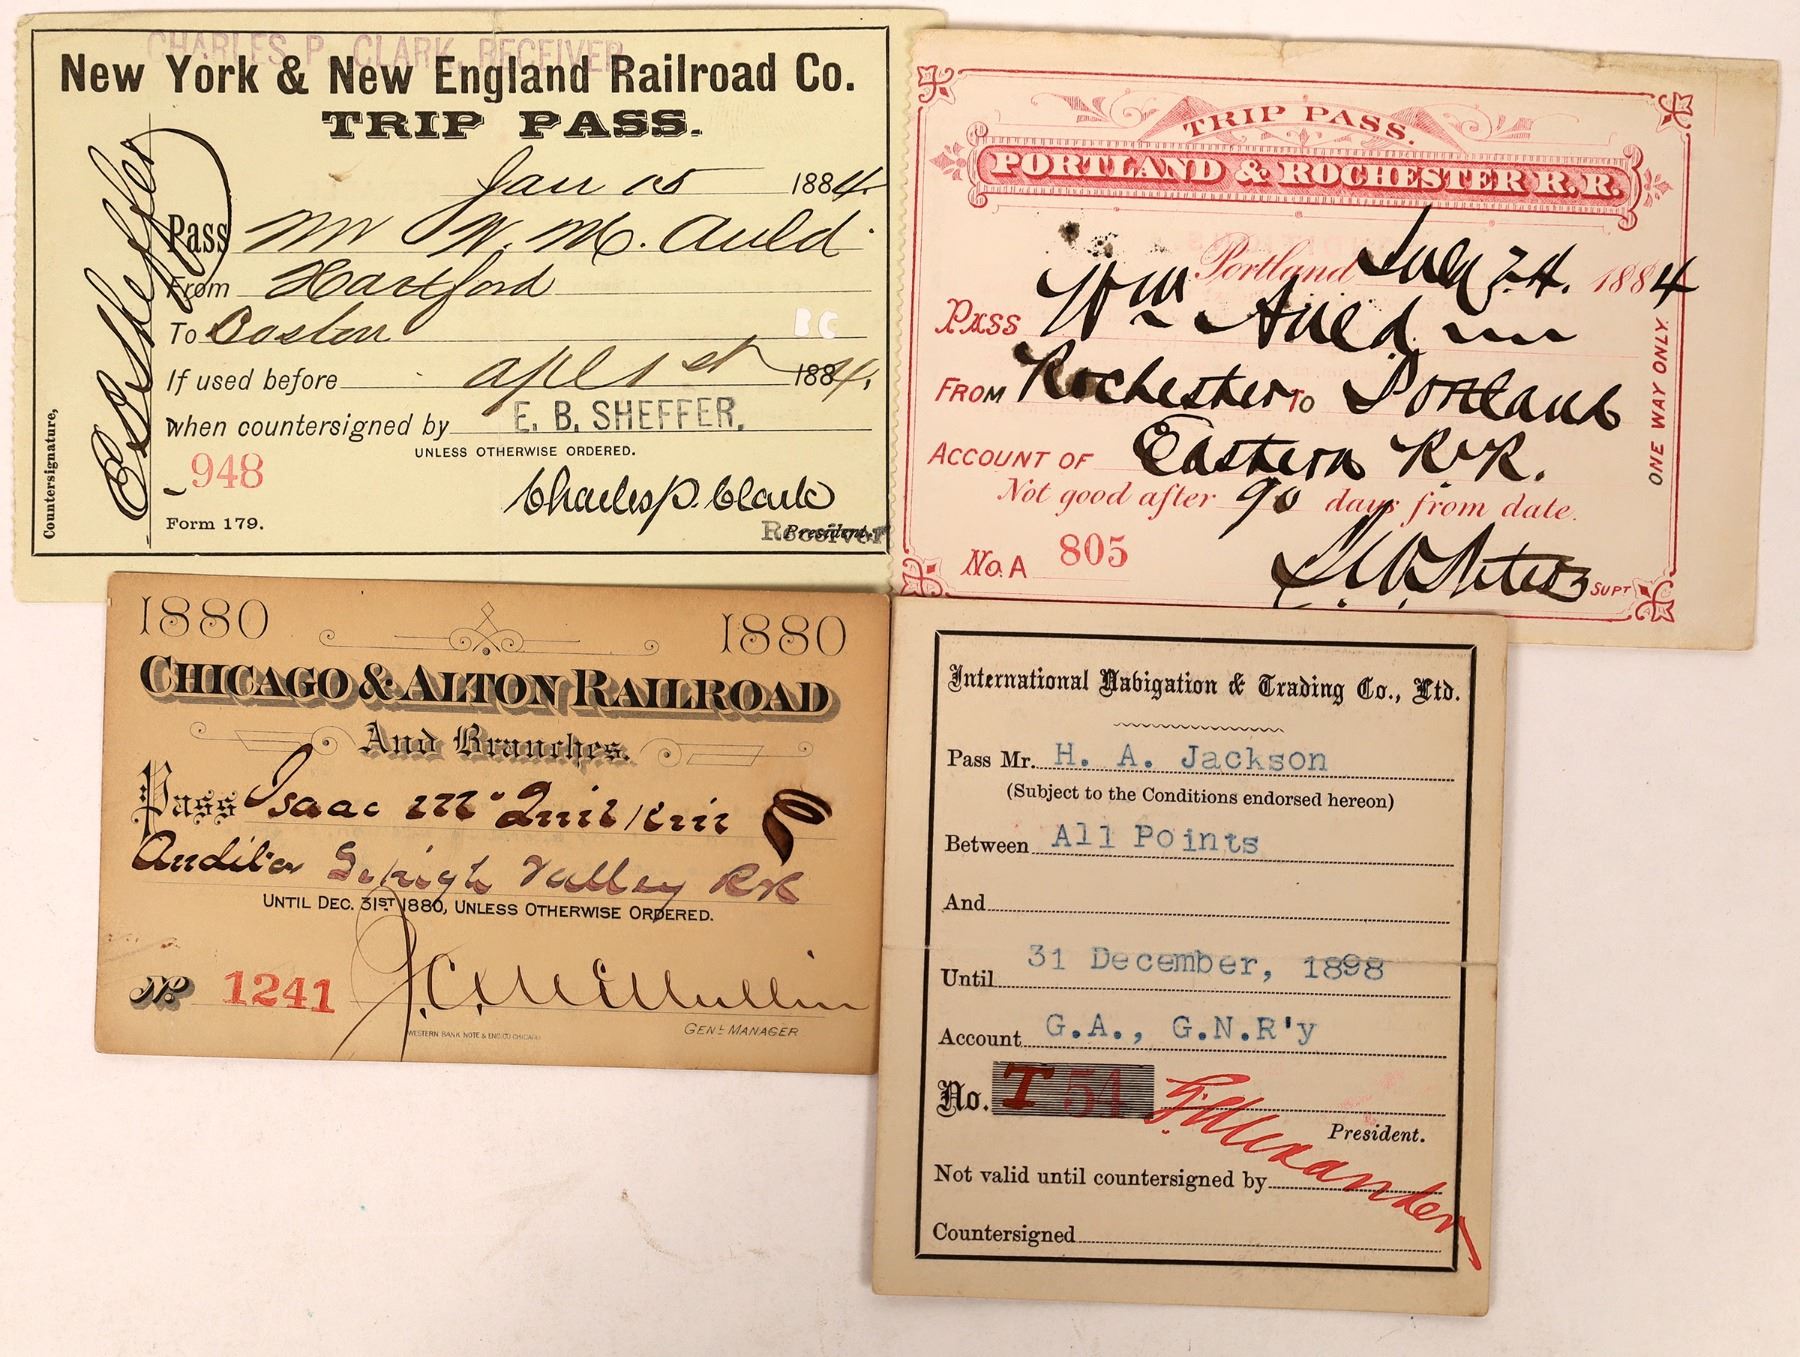 CHARLES P. CLARK, RECEIVER
New York & New England Railroad Co.
TRIP PASS.
Jan 15 1884.
Pass Mr W. M. Auld.
From Hartford
To Boston
BC
If used before Apl 1st 1884.
when countersigned by E. B. SHEFFER.
UNLESS OTHERWISE ORDERED.
948
Charles P. Clark
President.
Receiver
Form 179.
Countersignature,
E B Sheffer
TRIP PASS.
PORTLAND & ROCHESTER R. R.
Portland July 24. 1884
PASS Wm Auld
FROM Rochester TO Portland
ACCOUNT OF Eastern R.R.
Not good after 90 days from date.
No. A 805
SUPT
ONE WAY ONLY.
1880 1880
CHICAGO & ALTON RAILROAD
And Branches.
Pass Isaac McQuilkin
Auditor Lehigh Valley RR
UNTIL DEC. 31ST 1880, UNLESS OTHERWISE ORDERED.
No 1241
J. C. McMullin
WESTERN BANK NOTE & ENG. CO. CHICAGO
GENL MANAGER
International Navigation & Trading Co., Ltd.
Pass Mr. H. A. Jackson
(Subject to the Conditions endorsed hereon)
Between All Points
And
Until 31 December, 1898
Account G.A., G.N.R'y
No. T 54
Alexander
President.
Not valid until countersigned by
Countersigned